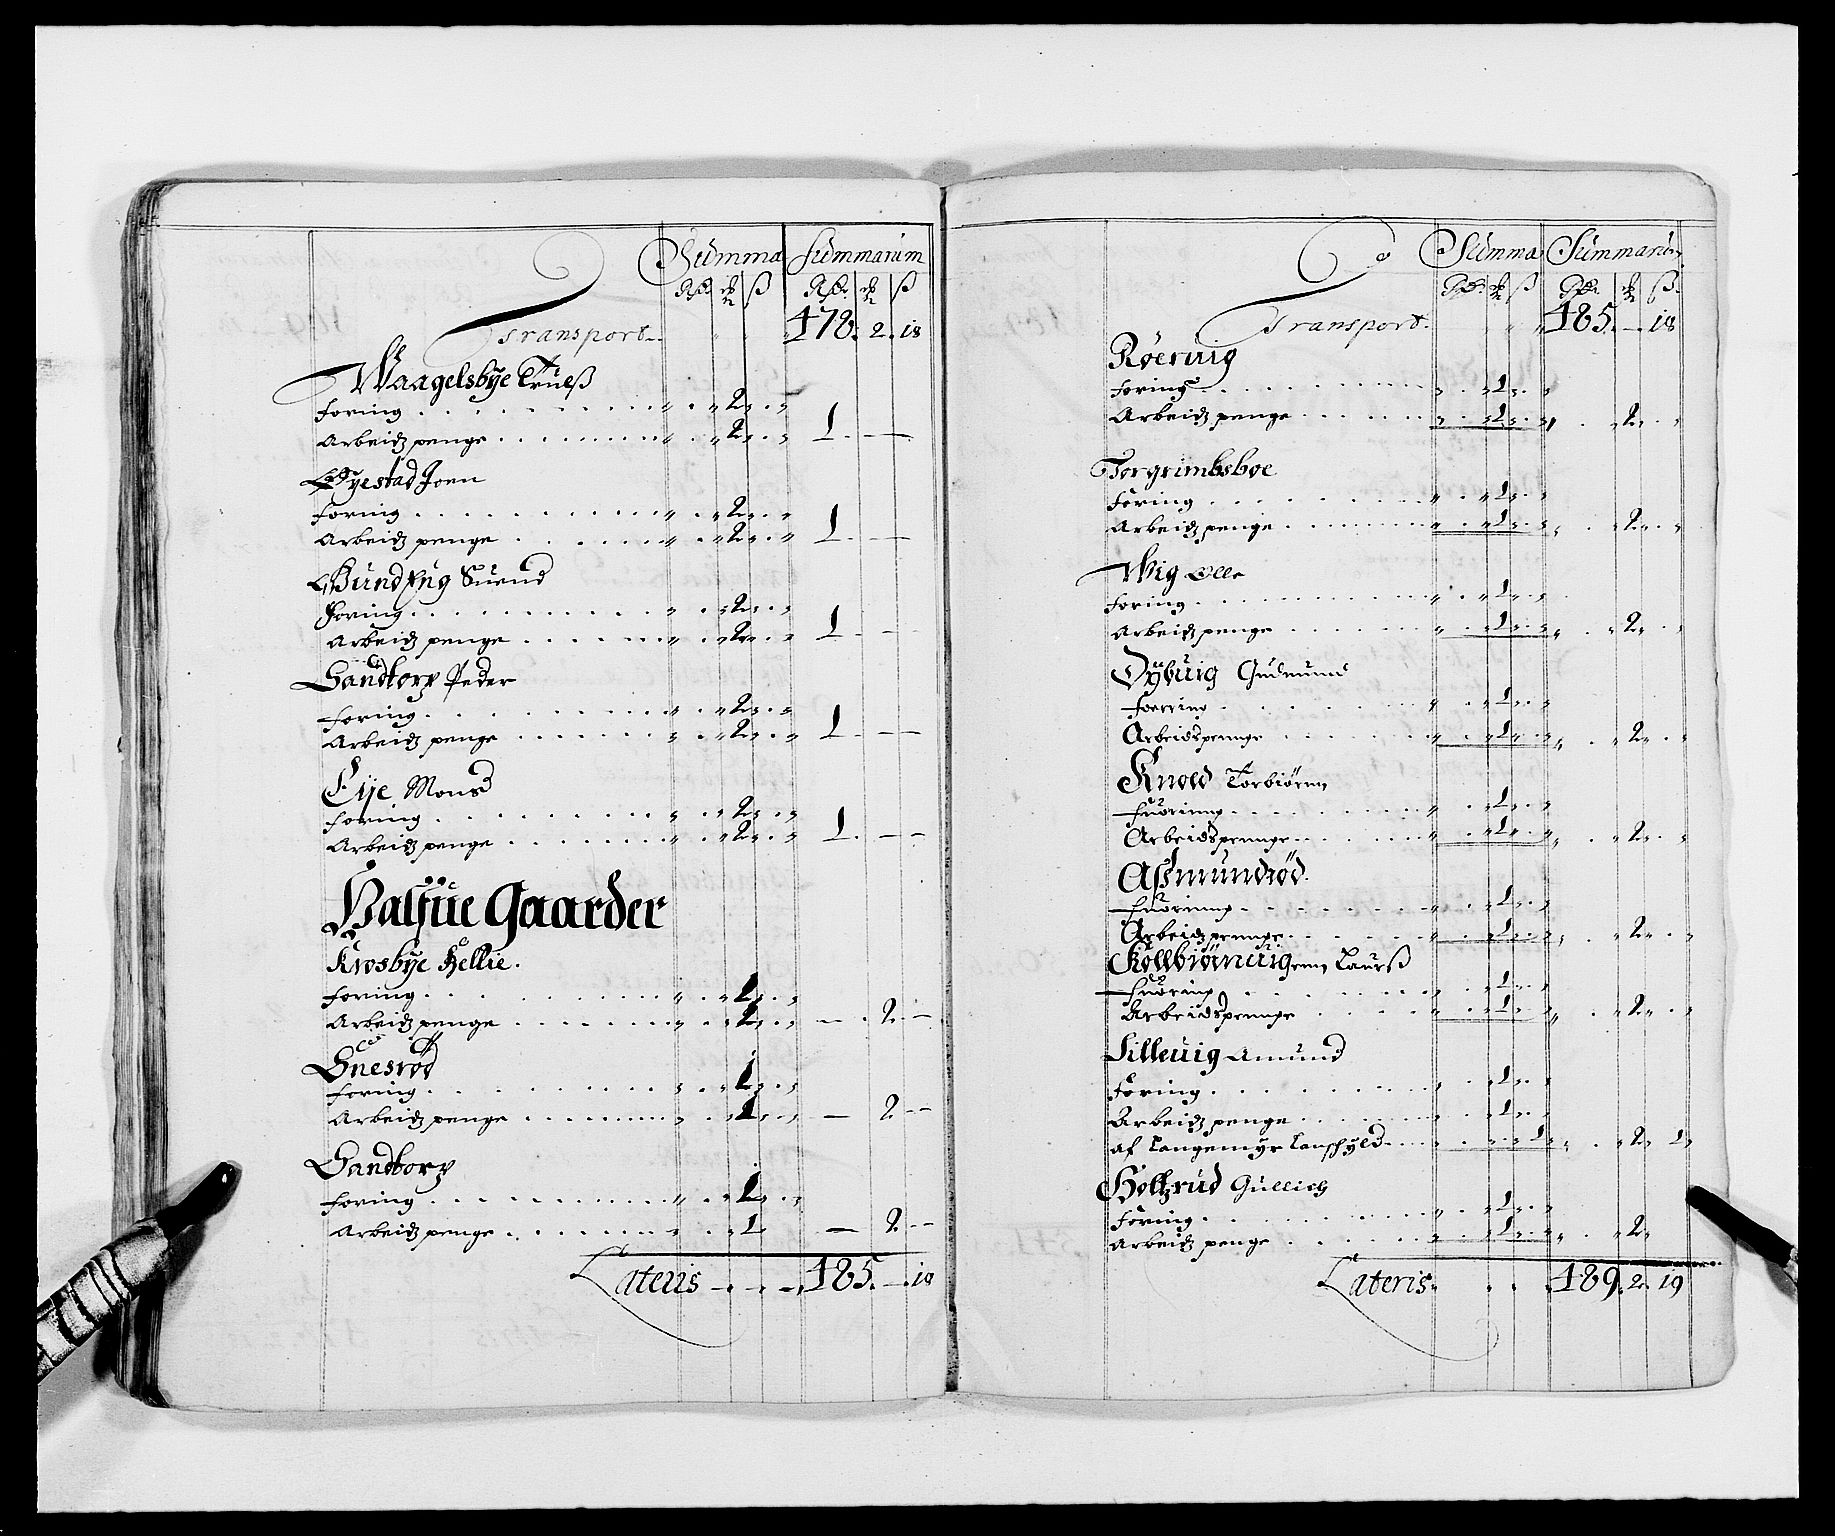 Summa Summarum
Rdr. ꝛ ß Rdr. ꝛ ß
Transport 478. 2. 18
Waagelsbye Truelß
foring 2
Arbeidz penge 2 1. — —
Øyestad Joen
foring 2
Arbeidz penge 2 1. — —
Suend
Foring 2
Arbeidz penge 2 1. — —
Sandtorp Peder
foring 2
Arbeidz penge 2 1. — —
Eije Mons
foring 2
Arbeidz penge 2 1. — —
Halfue Gaarder
Krosbye Hellie.
foring 1
Arbeidz penge 1 — 2 —
Snesrød
foring 1
Arbeidz penge 1 — 2 —
Sandtorp
foring 1
Arbeidz penge 1 — 2 —
Lateris 485. — 18
Summa Summarum
Rdr. ꝛ ß Rdr. ꝛ ß
Transport. 485. — 18
Røeruig
foring 1
Arbeidz penge 1 2
Torgrimbsboe
foring 1
Arbeidz penge 1 2
Wig Olle
foring 1
Arbeidz penge 1 2
Dÿbuig Gudmund
foering 1
Arbeidspenge 1 2
Knold Torbiørn
fuoring 1
Arbeidspenge 1 2
Aßmundrød.
fuoring 1
Arbeidzpenge 1 2
Kollbiørnuig Laurß
fuoring 1
Arbeidspenge 1 2
Silleuig Amund
foring 1
Arbeidz penge 1
af Langemyr Landschyld 1 2 1
Holtzrud Gullich
foring 1
Arbeidz penge 1 2
Lateris 489. 2. 19